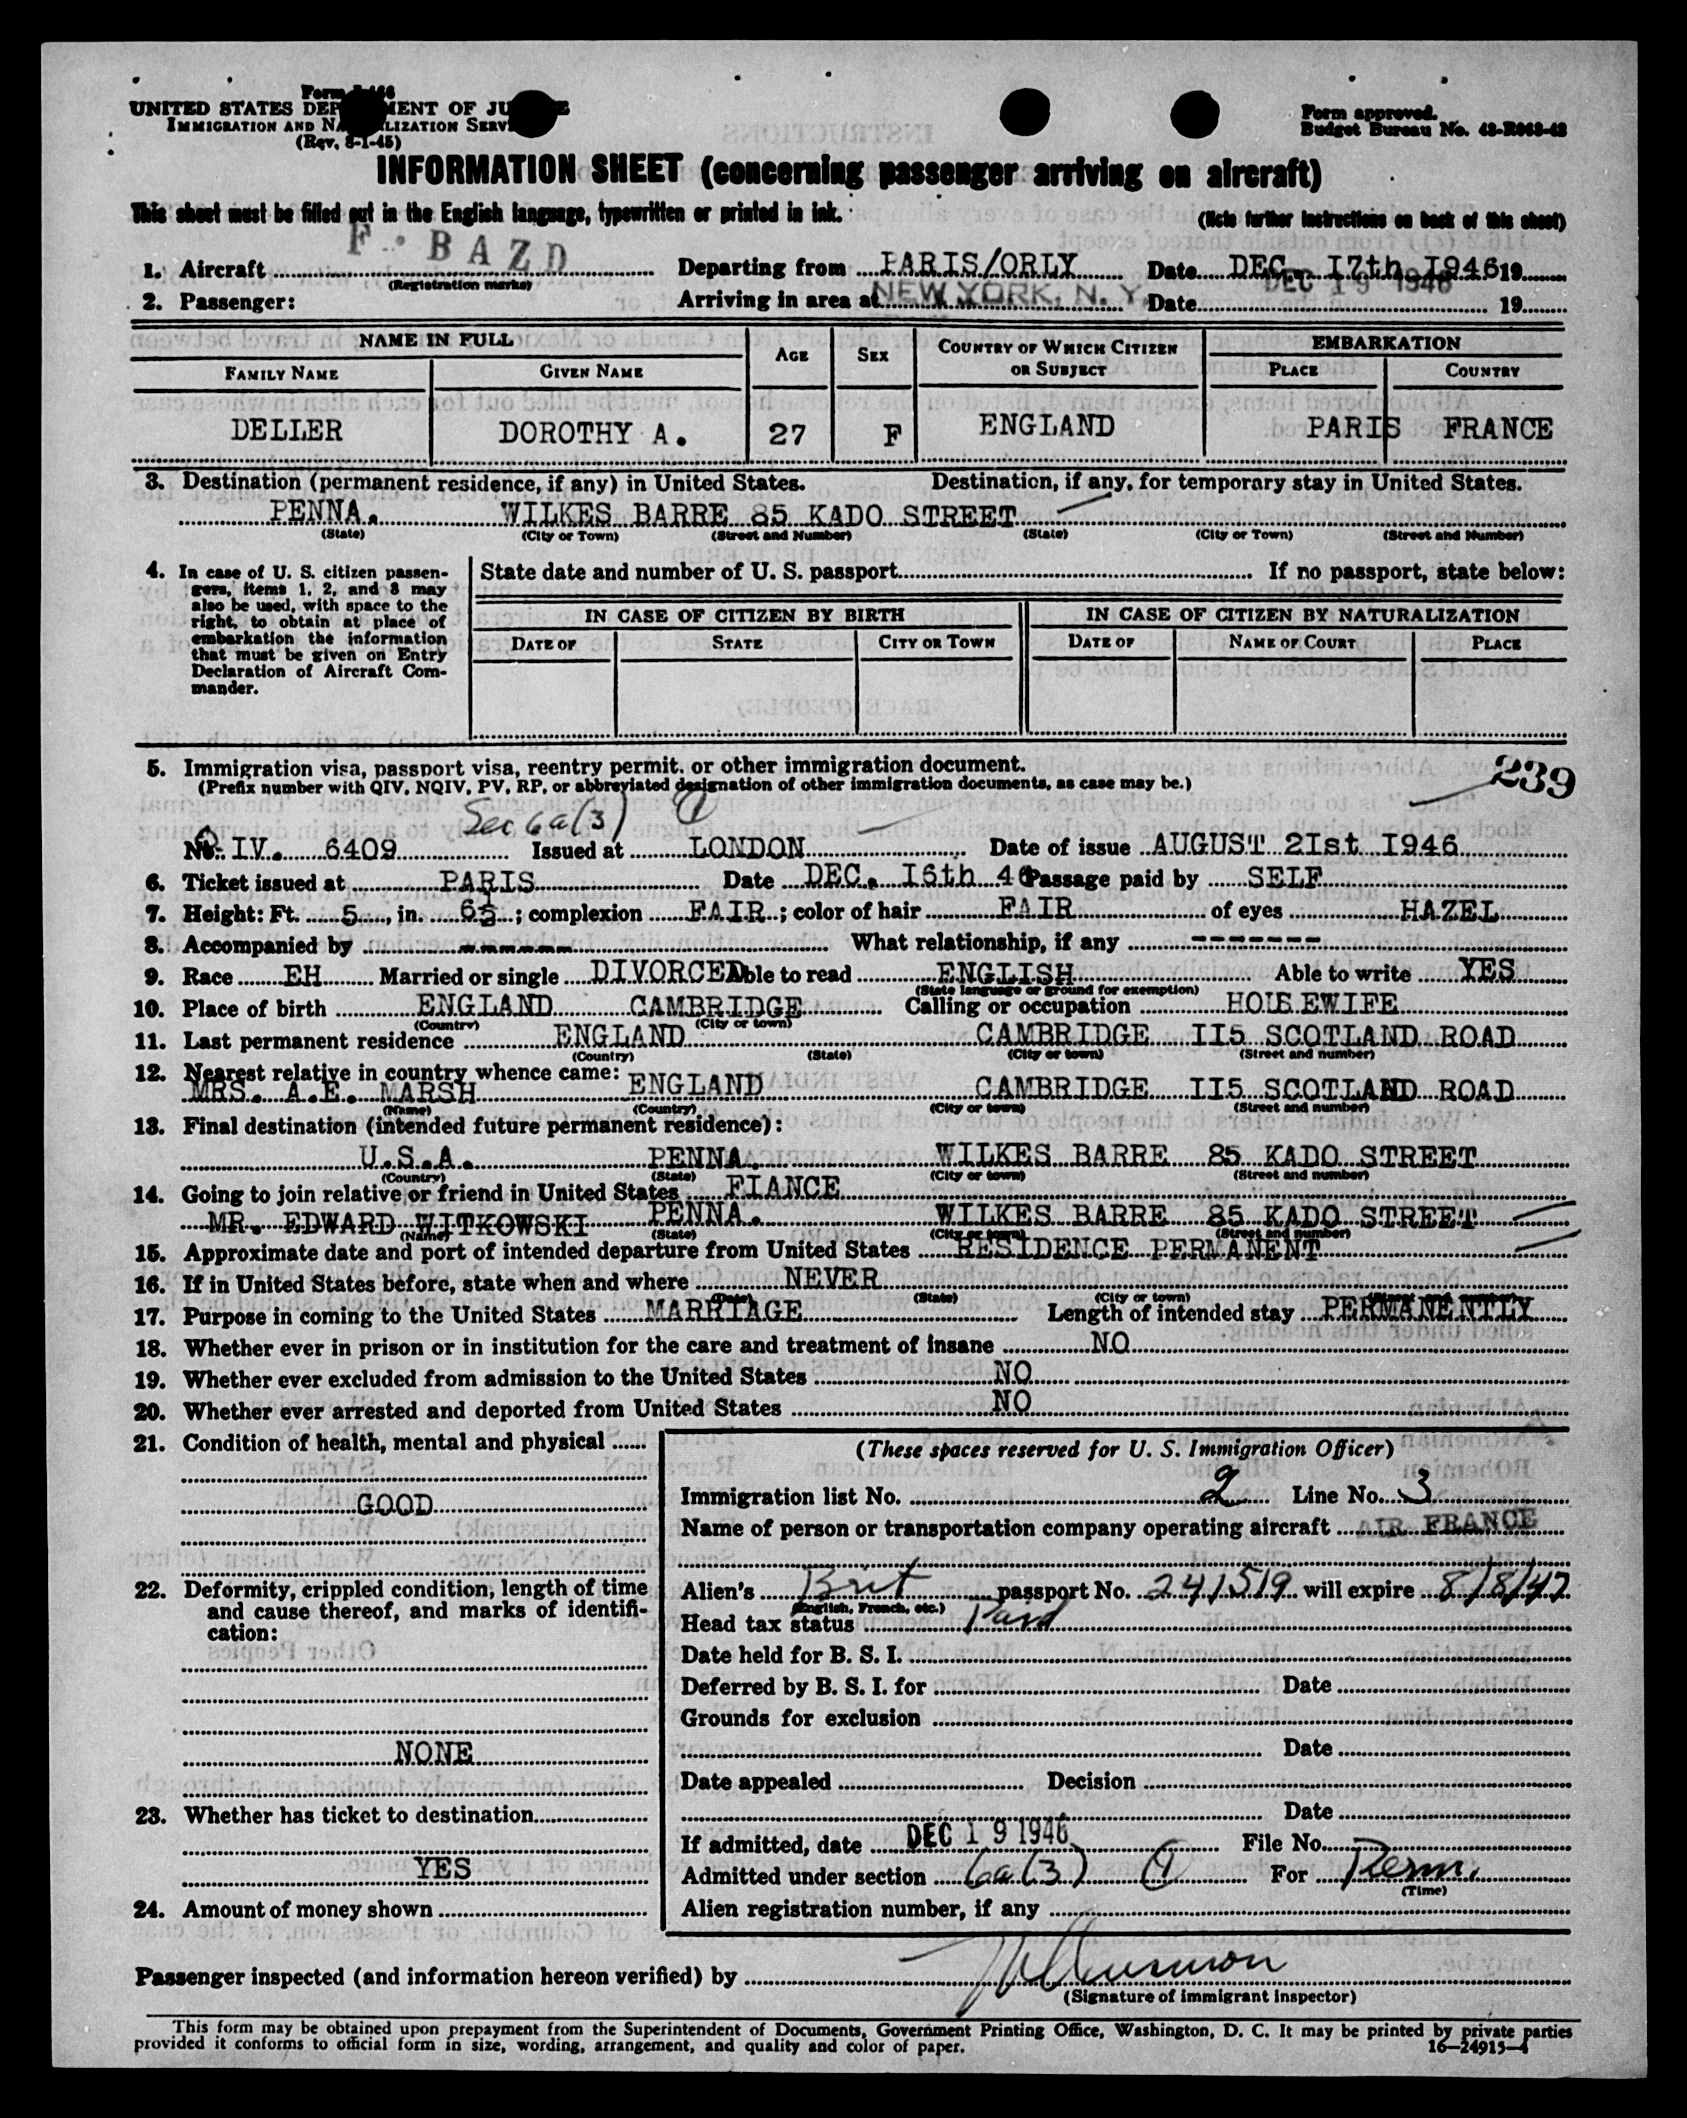 Form I-466
UNITED STATES DEPARTMENT OF JUSTICE
IMMIGRATION AND NATURALIZATION SERVICE
(Rev. 8-1-45)
Form approved.
Budget Bureau No. 43-R063-42
INFORMATION SHEET (concerning passenger arriving on aircraft)
This sheet must be filled out in the English language, typewritten or printed in ink. (Note further instructions on back of this sheet)
1. Aircraft F-BAZD Departing from PARIS/ORLY Date DEC. I7th I946 19
(Registration marks)
2. Passenger: Arriving in area at NEW YORK, N. Y. Date DEC 19 1946 19
NAME IN FULL AGE SEX COUNTRY OF WHICH CITIZEN OR SUBJECT EMBARKATION
FAMILY NAME GIVEN NAME PLACE COUNTRY
DELLER DOROTHY A. 27 F ENGLAND PARIS FRANCE
3. Destination (permanent residence, if any) in United States. Destination, if any, for temporary stay in United States.
PENNA. WILKES BARRE 85 KADO STREET
(State) (City or Town) (Street and Number) (State) (City or Town) (Street and Number)
4. In case of U. S. citizen passengers, items 1, 2, and 3 may also be used, with space to the right, to obtain at place of embarkation the information that must be given on Entry Declaration of Aircraft Commander.
State date and number of U. S. passport If no passport, state below:
IN CASE OF CITIZEN BY BIRTH IN CASE OF CITIZEN BY NATURALIZATION
DATE OF STATE CITY OR TOWN DATE OF NAME OF COURT PLACE
5. Immigration visa, passport visa, reentry permit, or other immigration document. 239
(Prefix number with QIV, NQIV, PV, RP, or abbreviated designation of other immigration documents, as case may be.)
Sec 6a(3)
No. Q IV. 6409 Issued at LONDON Date of issue AUGUST 2Ist I946
6. Ticket issued at PARIS Date DEC. I6th 46 Passage paid by SELF
7. Height: Ft. 5, in. 6½; complexion FAIR; color of hair FAIR of eyes HAZEL
8. Accompanied by ------ What relationship, if any -------
9. Race EH Married or single DIVORCED Able to read ENGLISH Able to write YES
(State language or ground for exemption)
10. Place of birth ENGLAND CAMBRIDGE Calling or occupation HOUSEWIFE
(Country) (City or town)
11. Last permanent residence ENGLAND CAMBRIDGE II5 SCOTLAND ROAD
(Country) (State) (City or town) (Street and number)
12. Nearest relative in country whence came:
MRS. A.E. MARSH ENGLAND CAMBRIDGE II5 SCOTLAND ROAD
(Name) (Country) (City or town) (Street and number)
13. Final destination (intended future permanent residence):
U.S.A. PENNA. WILKES BARRE 85 KADO STREET
(Country) (State) (City or town) (Street and number)
14. Going to join relative or friend in United States FIANCE
MR. EDWARD WITKOWSKI PENNA. WILKES BARRE 85 KADO STREET
(Name) (State) (City or town) (Street and number)
15. Approximate date and port of intended departure from United States RESIDENCE PERMANENT
16. If in United States before, state when and where NEVER
(Date) (State) (City or town) (Street and number)
17. Purpose in coming to the United States MARRIAGE Length of intended stay PERMANENTLY
18. Whether ever in prison or in institution for the care and treatment of insane NO
19. Whether ever excluded from admission to the United States NO
20. Whether ever arrested and deported from United States NO
21. Condition of health, mental and physical
GOOD
22. Deformity, crippled condition, length of time and cause thereof, and marks of identification:
NONE
23. Whether has ticket to destination
YES
24. Amount of money shown
(These spaces reserved for U. S. Immigration Officer)
Immigration list No. 2 Line No. 3
Name of person or transportation company operating aircraft AIR FRANCE
Alien's Brit passport No. 241519 will expire 8/8/47
(English, French, etc.)
Head tax status Paid
Date held for B. S. I.
Deferred by B. S. I. for Date
Grounds for exclusion
Date
Date appealed Decision
Date
If admitted, date DEC 19 1946 File No.
Admitted under section 6a(3) For Perm.
(Time)
Alien registration number, if any
Passenger inspected (and information hereon verified) by
(Signature of immigrant inspector)
This form may be obtained upon prepayment from the Superintendent of Documents, Government Printing Office, Washington, D. C. It may be printed by private parties
provided it conforms to official form in size, wording, arrangement, and quality and color of paper. 16—24915-1